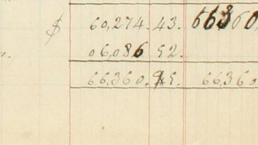 $ 60,274.43. 66360
06,086 52.
66,360.95. 66,360